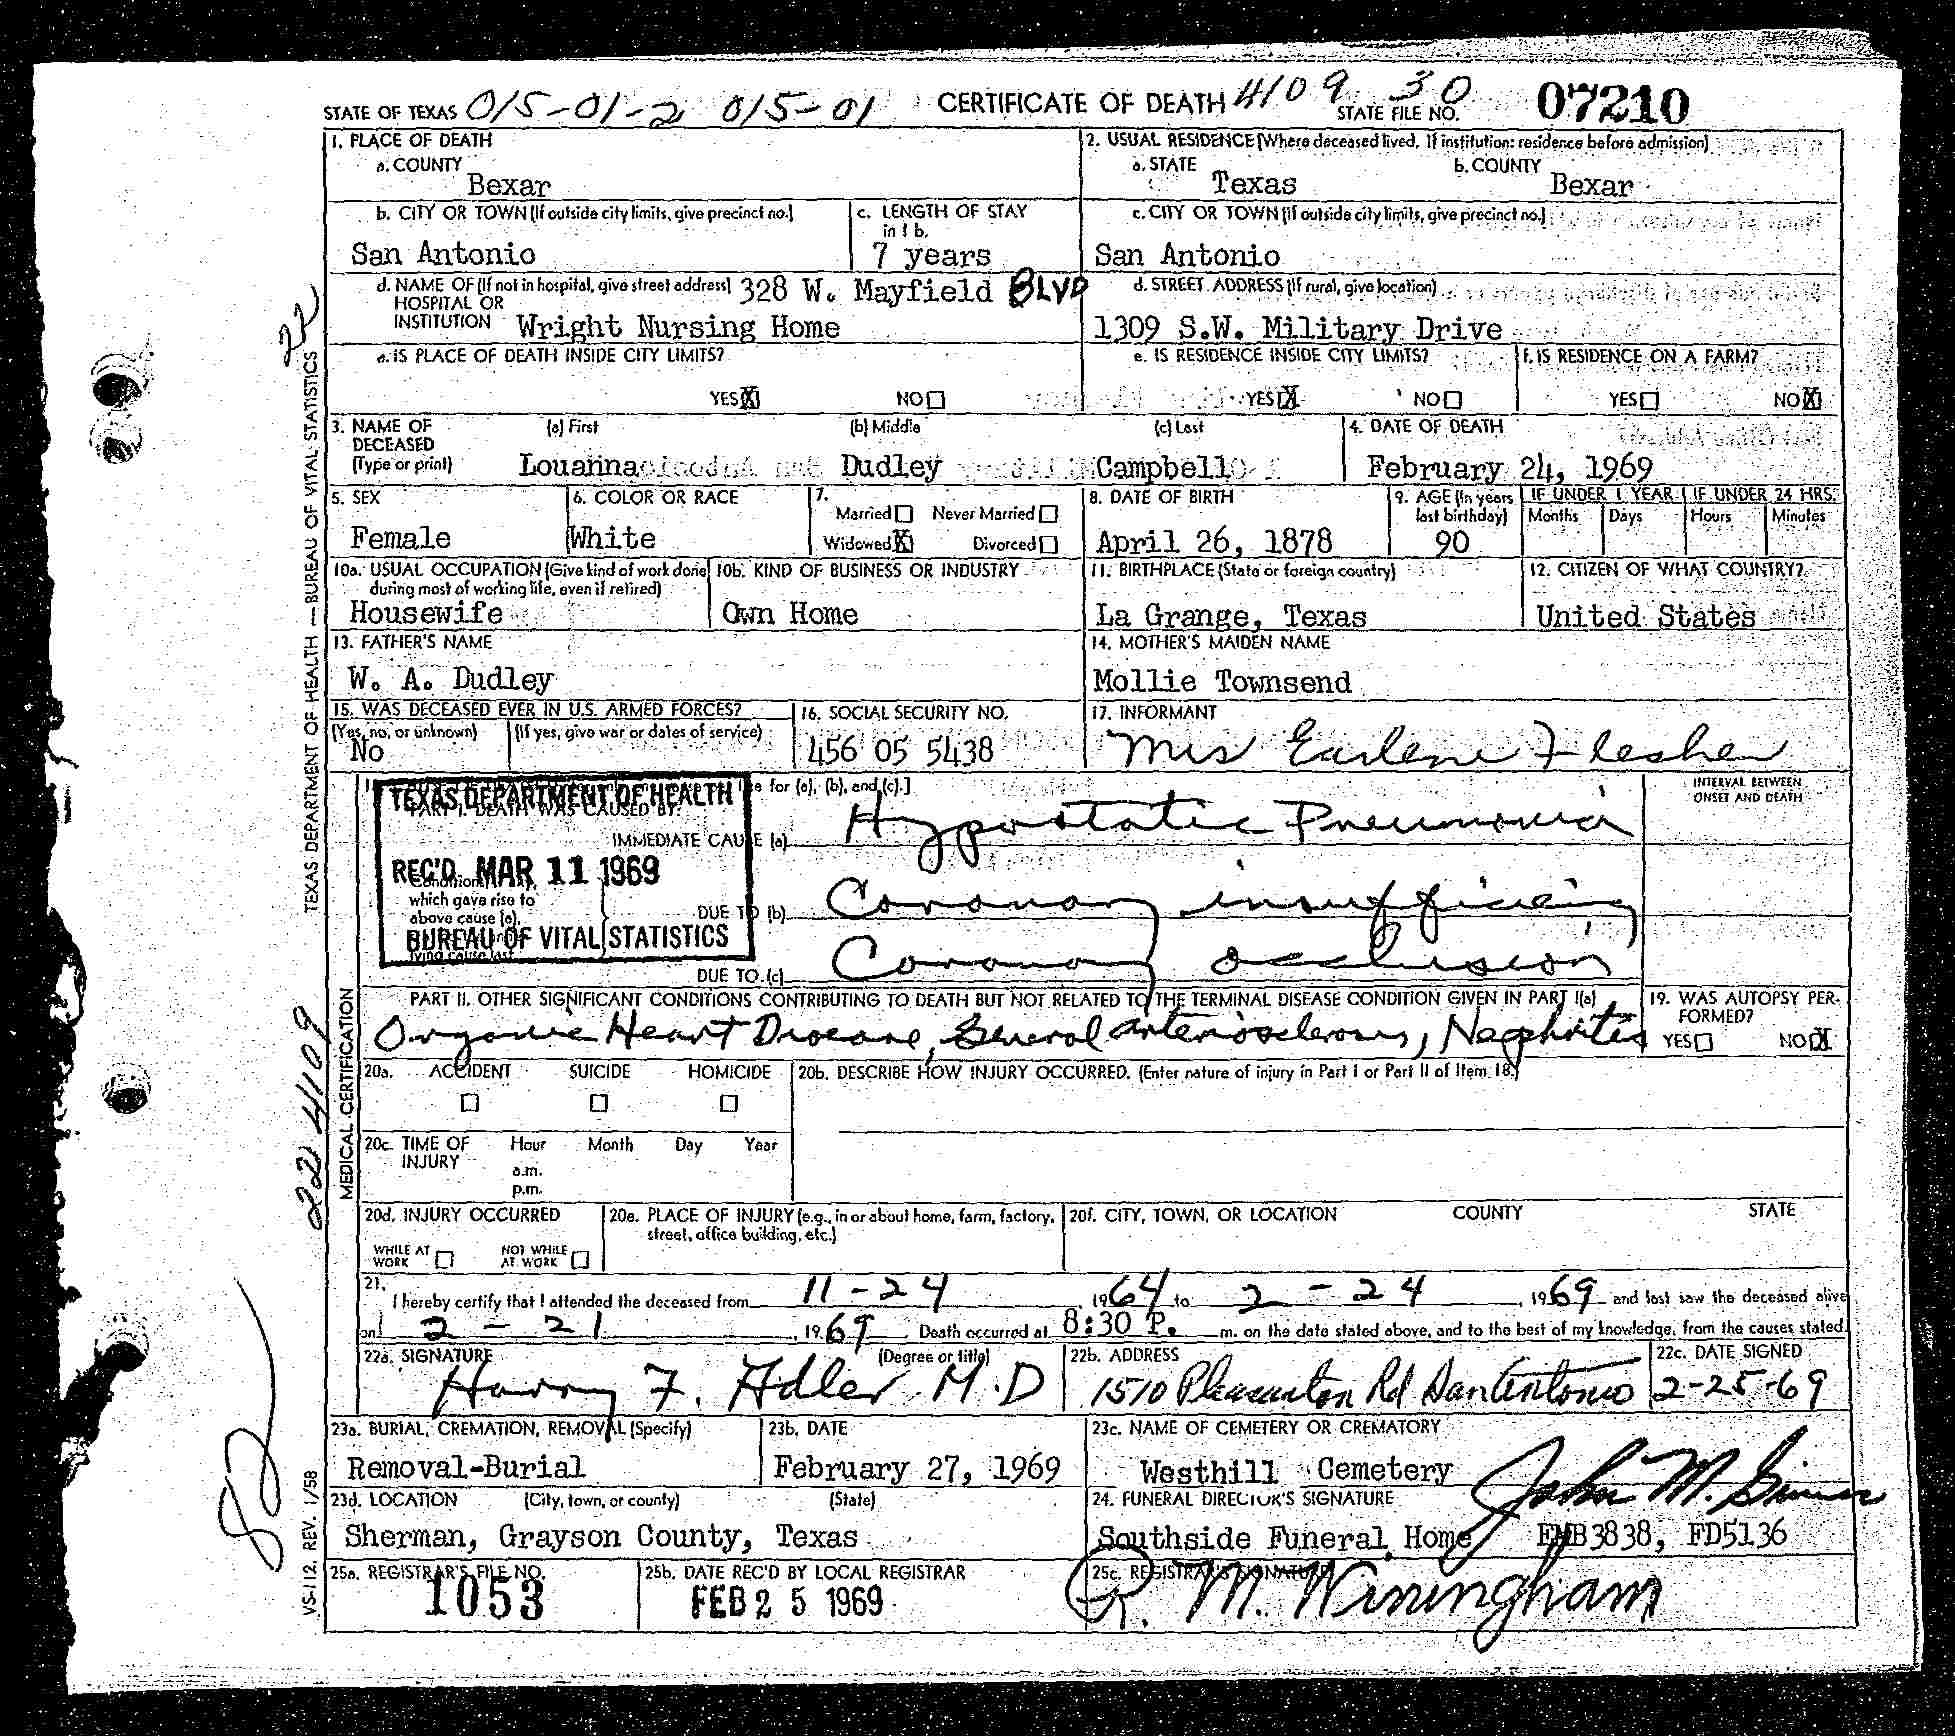 STATE OF TEXAS 015-01-2 015-01 CERTIFICATE OF DEATH 4109 30 STATE FILE NO. 07210
1. PLACE OF DEATH
a. COUNTY
Bexar
2. USUAL RESIDENCE (Where deceased lived. If institution: residence before admission)
a. STATE
Texas
b. COUNTY
Bexar
b. CITY OR TOWN (If outside city limits, give precinct no.)
San Antonio
c. LENGTH OF STAY
in 1 b.
7 years
c. CITY OR TOWN (If outside city limits, give precinct no.)
San Antonio
d. NAME OF (If not in hospital, give street address) 328 W. Mayfield BLVD
HOSPITAL OR
INSTITUTION Wright Nursing Home
d. STREET ADDRESS (If rural, give location)
1309 S.W. Military Drive
e. IS PLACE OF DEATH INSIDE CITY LIMITS?
YES X NO
e. IS RESIDENCE INSIDE CITY LIMITS?
YES X NO
f. IS RESIDENCE ON A FARM?
YES NO X
3. NAME OF
DECEASED
(Type or print)
(a) First (b) Middle (c) Last
Louanna Dudley Campbell
4. DATE OF DEATH
February 24, 1969
5. SEX
Female
6. COLOR OR RACE
White
7.
Married Never Married
Widowed X Divorced
8. DATE OF BIRTH
April 26, 1878
9. AGE (In years
last birthday)
90
IF UNDER 1 YEAR IF UNDER 24 HRS.
Months Days Hours Minutes
10a. USUAL OCCUPATION (Give kind of work done
during most of working life, even if retired)
Housewife
10b. KIND OF BUSINESS OR INDUSTRY
Own Home
11. BIRTHPLACE (State or foreign country)
La Grange, Texas
12. CITIZEN OF WHAT COUNTRY?
United States
13. FATHER'S NAME
W. A. Dudley
14. MOTHER'S MAIDEN NAME
Mollie Townsend
15. WAS DECEASED EVER IN U.S. ARMED FORCES?
(Yes, no, or unknown) (If yes, give war or dates of service)
No
16. SOCIAL SECURITY NO.
456 05 5438
17. INFORMANT
Mrs Earlene Flesher
for (a), (b), and (c).]
INTERVAL BETWEEN
ONSET AND DEATH
TEXAS DEPARTMENT OF HEALTH
PART I. DEATH WAS CAUSED BY:
IMMEDIATE CAUSE (a) Hypostatic Pneumonia
REC'D MAR 11 1969
Conditions, if any,
which gave rise to
above cause (a),
DUE TO (b) Coronary insufficiency
BUREAU OF VITAL STATISTICS
lying cause last.
DUE TO (c) Coronary occlusion
PART II. OTHER SIGNIFICANT CONDITIONS CONTRIBUTING TO DEATH BUT NOT RELATED TO THE TERMINAL DISEASE CONDITION GIVEN IN PART I(a)
Organic Heart Disease, General Arteriosclerosis, Nephritis
19. WAS AUTOPSY PER-
FORMED?
YES NO X
20a. ACCIDENT SUICIDE HOMICIDE
20b. DESCRIBE HOW INJURY OCCURRED. (Enter nature of injury in Part I or Part II of Item 18.)
20c. TIME OF
INJURY
Hour Month Day Year
a.m.
p.m.
20d. INJURY OCCURRED
WHILE AT
WORK
NOT WHILE
AT WORK
20e. PLACE OF INJURY (e.g., in or about home, farm, factory,
street, office building, etc.)
20f. CITY, TOWN, OR LOCATION COUNTY STATE
21.
I hereby certify that I attended the deceased from 11-24 1964 to 2-24, 1969 and last saw the deceased alive
on 2-21, 1969 Death occurred at 8:30 P. m. on the date stated above, and to the best of my knowledge, from the causes stated.
22a. SIGNATURE (Degree or title)
Harry F. Adler M.D
22b. ADDRESS
1510 Pleasanton Rd San Antonio
22c. DATE SIGNED
2-25-69
23a. BURIAL, CREMATION, REMOVAL (Specify)
Removal-Burial
23b. DATE
February 27, 1969
23c. NAME OF CEMETERY OR CREMATORY
Westhill Cemetery
23d. LOCATION (City, town, or county) (State)
Sherman, Grayson County, Texas
24. FUNERAL DIRECTOR'S SIGNATURE
John M.
Southside Funeral Home EMB3838, FD5136
25a. REGISTRAR'S FILE NO.
1053
25b. DATE REC'D BY LOCAL REGISTRAR
FEB 25 1969
25c. REGISTRAR'S SIGNATURE
R. M. Winingham
TEXAS DEPARTMENT OF HEALTH — BUREAU OF VITAL STATISTICS
22
MEDICAL CERTIFICATION
22 4109
VS-112 REV. 1/58
82